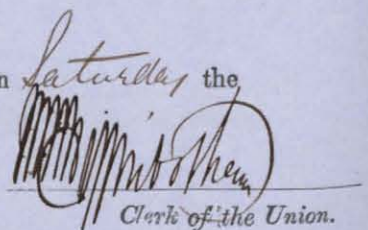 n Saturday the
Clerk of the Union.